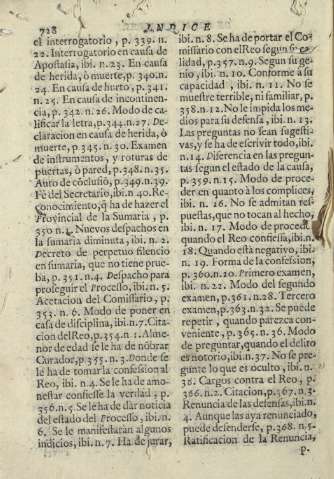 728 INDICE
el interrogatorio, p. 339. n.
22. Interrogatorio en causa de
Apostasia, ibi. n. 23. En causa
de herida, ò muerte, p. 340. n.
24. En causa de hurto, p. 341.
n. 25. En causa de incontinen-
cia, p. 342. n. 26. Modo de ca-
lificar la letra, p. 344. n. 27. De-
claracion en causa de herida, ò
muerte, p. 345. n. 30. Examen
de instrumentos, y roturas de
puertas, ò pared, p. 348. n. 35.
Auto de cõclusiõ, p. 349. n. 39.
Fè del Secretario, ibi. n. 40. Re
conocimiento, q̃ ha de hazer el
Provincial de la Sumaria, p.
350. n. 1. Nuevos despachos en
la sumaria diminuta, ibi. n. 2.
Decreto de perpetuo silencio
en sumaria, que no tiene prue-
ba, p. 351. n. 4. Despacho para
proseguir el Processo, ibi. n. 5.
Acetacion del Comissario, p.
353. n. 6. Modo de poner en
casa de disciplina, ibi. n. 7. Cita-
cion del Reo, p. 354. n. 1. Al me-
nor de edad se le ha de nõbrar
Curador, p. 355. n. 3. Donde se
le ha de tomar la confession al
Reo, ibi. n. 4. Se le ha de amo-
nestar confiesse la verdad, p.
356. n. 5. Se le ha de dar noticia
del estado del Processo, ibi. n.
6. Se le manifestaràn algunos
indicios, ibi. n. 7. Ha de jurar,
ibi. n. 8. Se ha de portar el Co-
missario con el Reo segun su ca-
lidad, p. 357. n. 9. Segun su ge-
nio, ibi. n. 10. Conforme à su
capacidad, ibi. n. 11. No se
muestre terrible, ni familiar, p.
358. n. 12. No le impida los me-
dios para su defensa, ibi. n. 13.
Las preguntas no sean sugesti-
vas, y se ha de escrivir todo, ibi.
n. 14. Diferencia en las pregun-
tas segun el estado de la causa,
p. 359. n. 15. Modo de proce-
der en quanto à los complices,
ibi. n. 16. No se admitan res-
puestas, que no tocan al hecho,
ibi. n. 17. Modo de proceder
quando el Reo confiessa, ibi. n.
18. Quando està negativo, ibi.
n. 19. Forma de la confession,
p. 360. n. 20. Primero examen,
ibi. n. 22. Modo del segundo
examen, p. 361. n. 28. Tercero
examen, p. 363. n. 32. Se puede
repetir, quando parezca con-
veniente, p. 365. n. 36. Modo
de preguntar, quando el delito
es notorio, ibi. n. 37. No se pre-
gunte lo que es oculto, ibi. n.
36. Cargos contra el Reo, p.
366. n. 2. Citacion, p. 367. n. 3.
Renuncia de las defensas, ibi. n.
4. Aunque las aya renunciado,
puede defenderse, p. 368. n. 5.
Ratificacion de la Renuncia,
p.